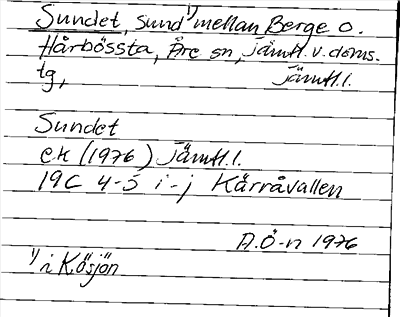 Sundet, sund ¹⁾ mellan Berge o.
Hårbössta, Åre sn, Jämtl. v. doms.
tg, Jämtl.l.
Sundet
ek (1976) Jämtl.l.
19C 4-5 i-j Kärråvallen
A.Ö-n 1976
¹⁾ i Kösjön